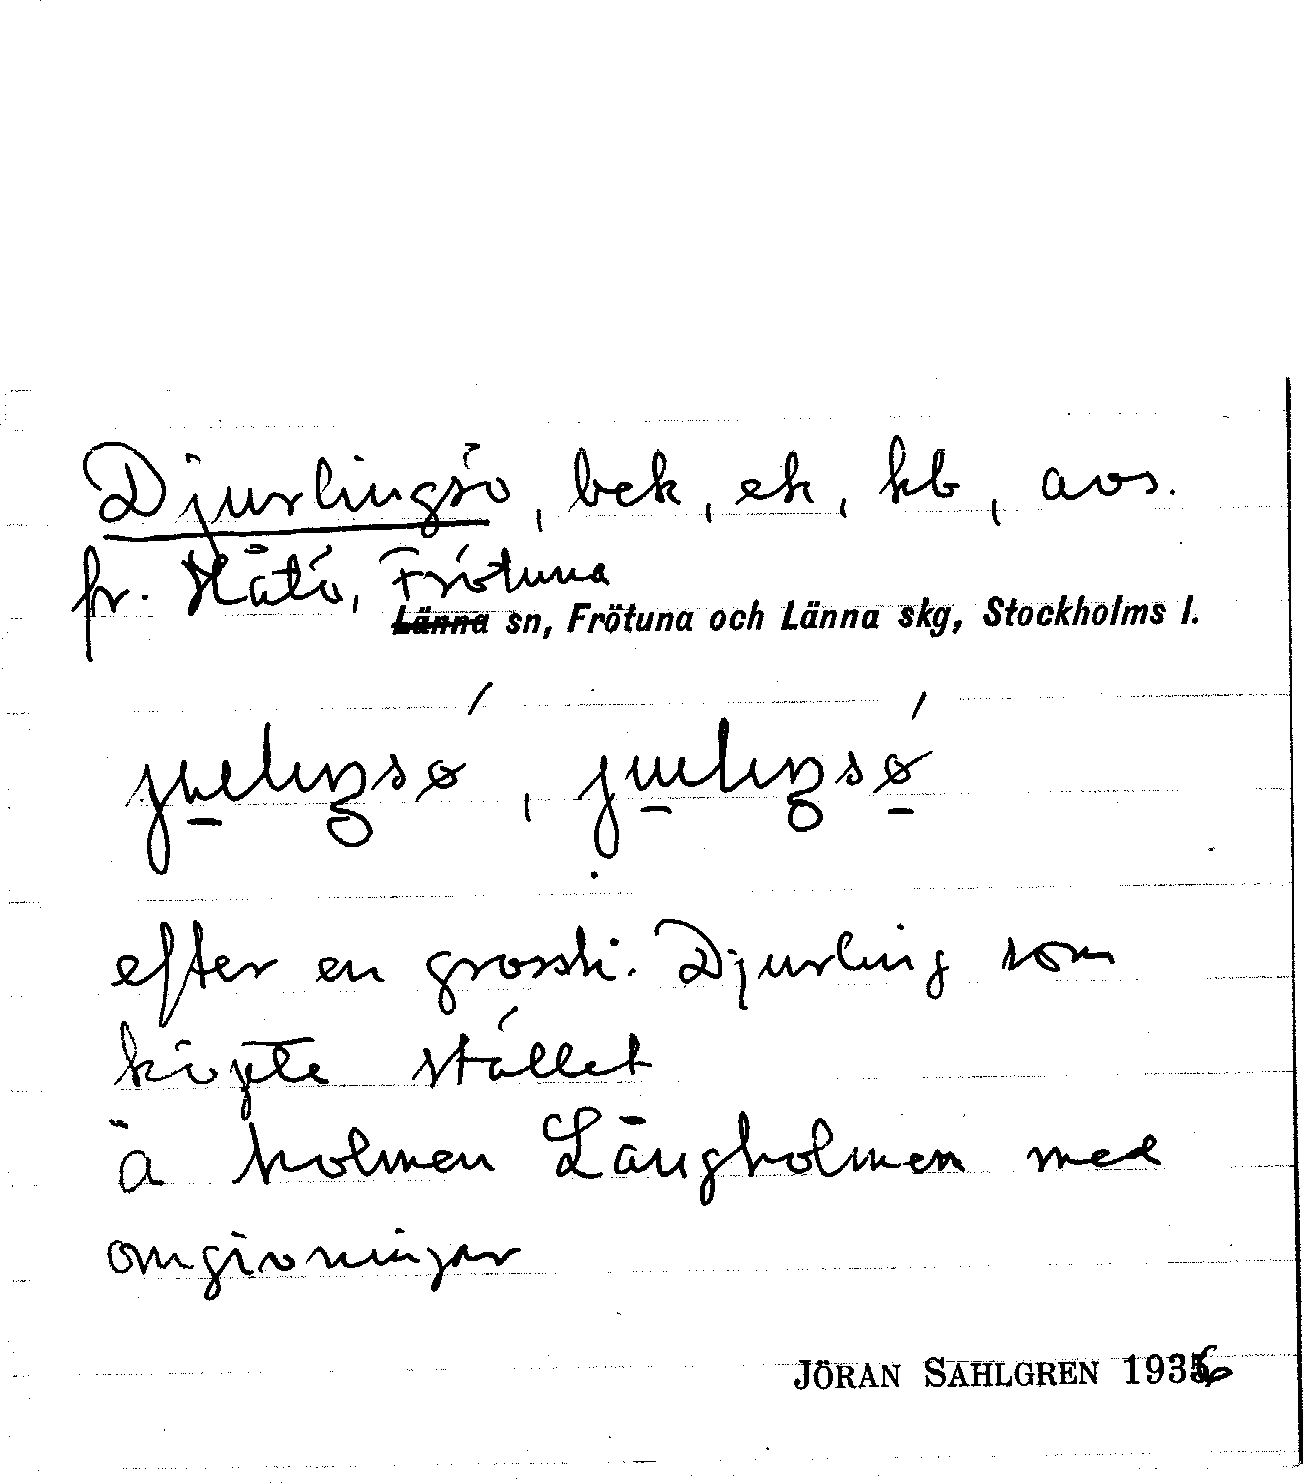 Djurlingsö, bek, ek, kb, avs.
fr. Hätö, Frötuna
Länna sn, Frötuna och Länna skg, Stockholms l.
efter en grossh. Djurling som
köpte stället
å holmen Långholmen med
omgivningar
JÖRAN SAHLGREN 1936